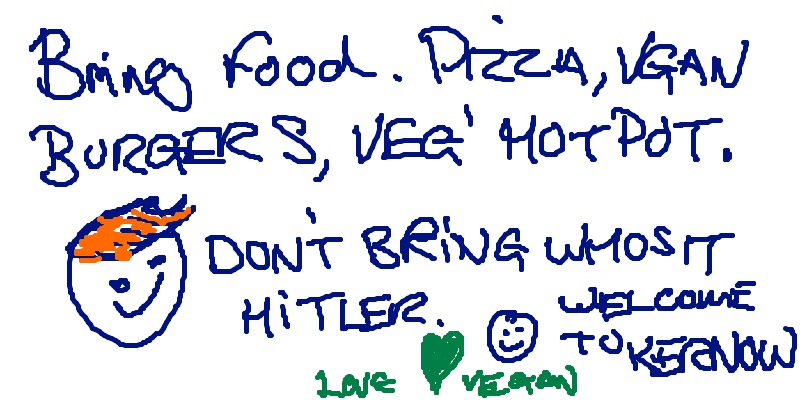 Bring Food. PIZZA, VGAN
BURGERS, VEG' HOTPOT.
DON'T BRING WHOSIT
HITLER.
WELCOME
TO KERNOW
LOVE VEGAN